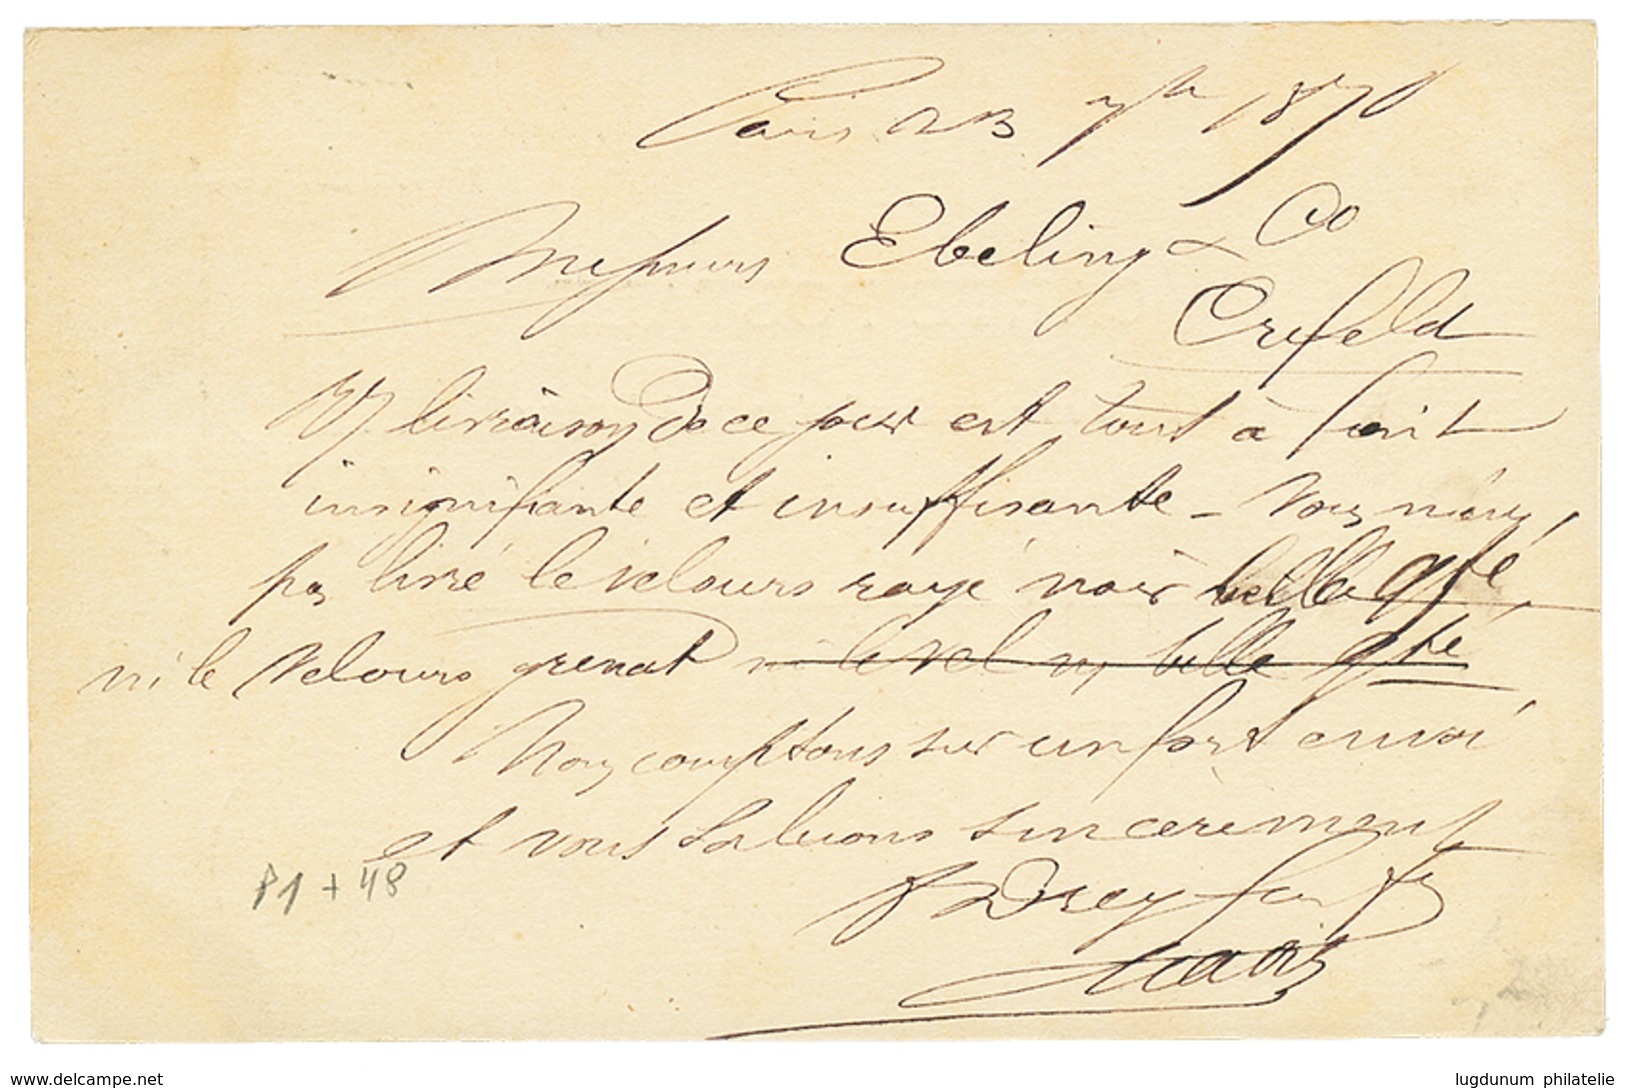 Paris 23 7bre 1878
Messieurs Ebeling & Co
Crefeld
V/ livraison de ce jour est tout à fait
insignifiante et insuffisante - Vous n'avez
pas livré le velours rayé noir belle qté,
ni le velours grenat ni le vel belle qté
Nous comptons sur un fort envoi
et vous saluons sincèrement
Dreyfus
P1 + 48
www.delcampe.net
lugdunum philatelie